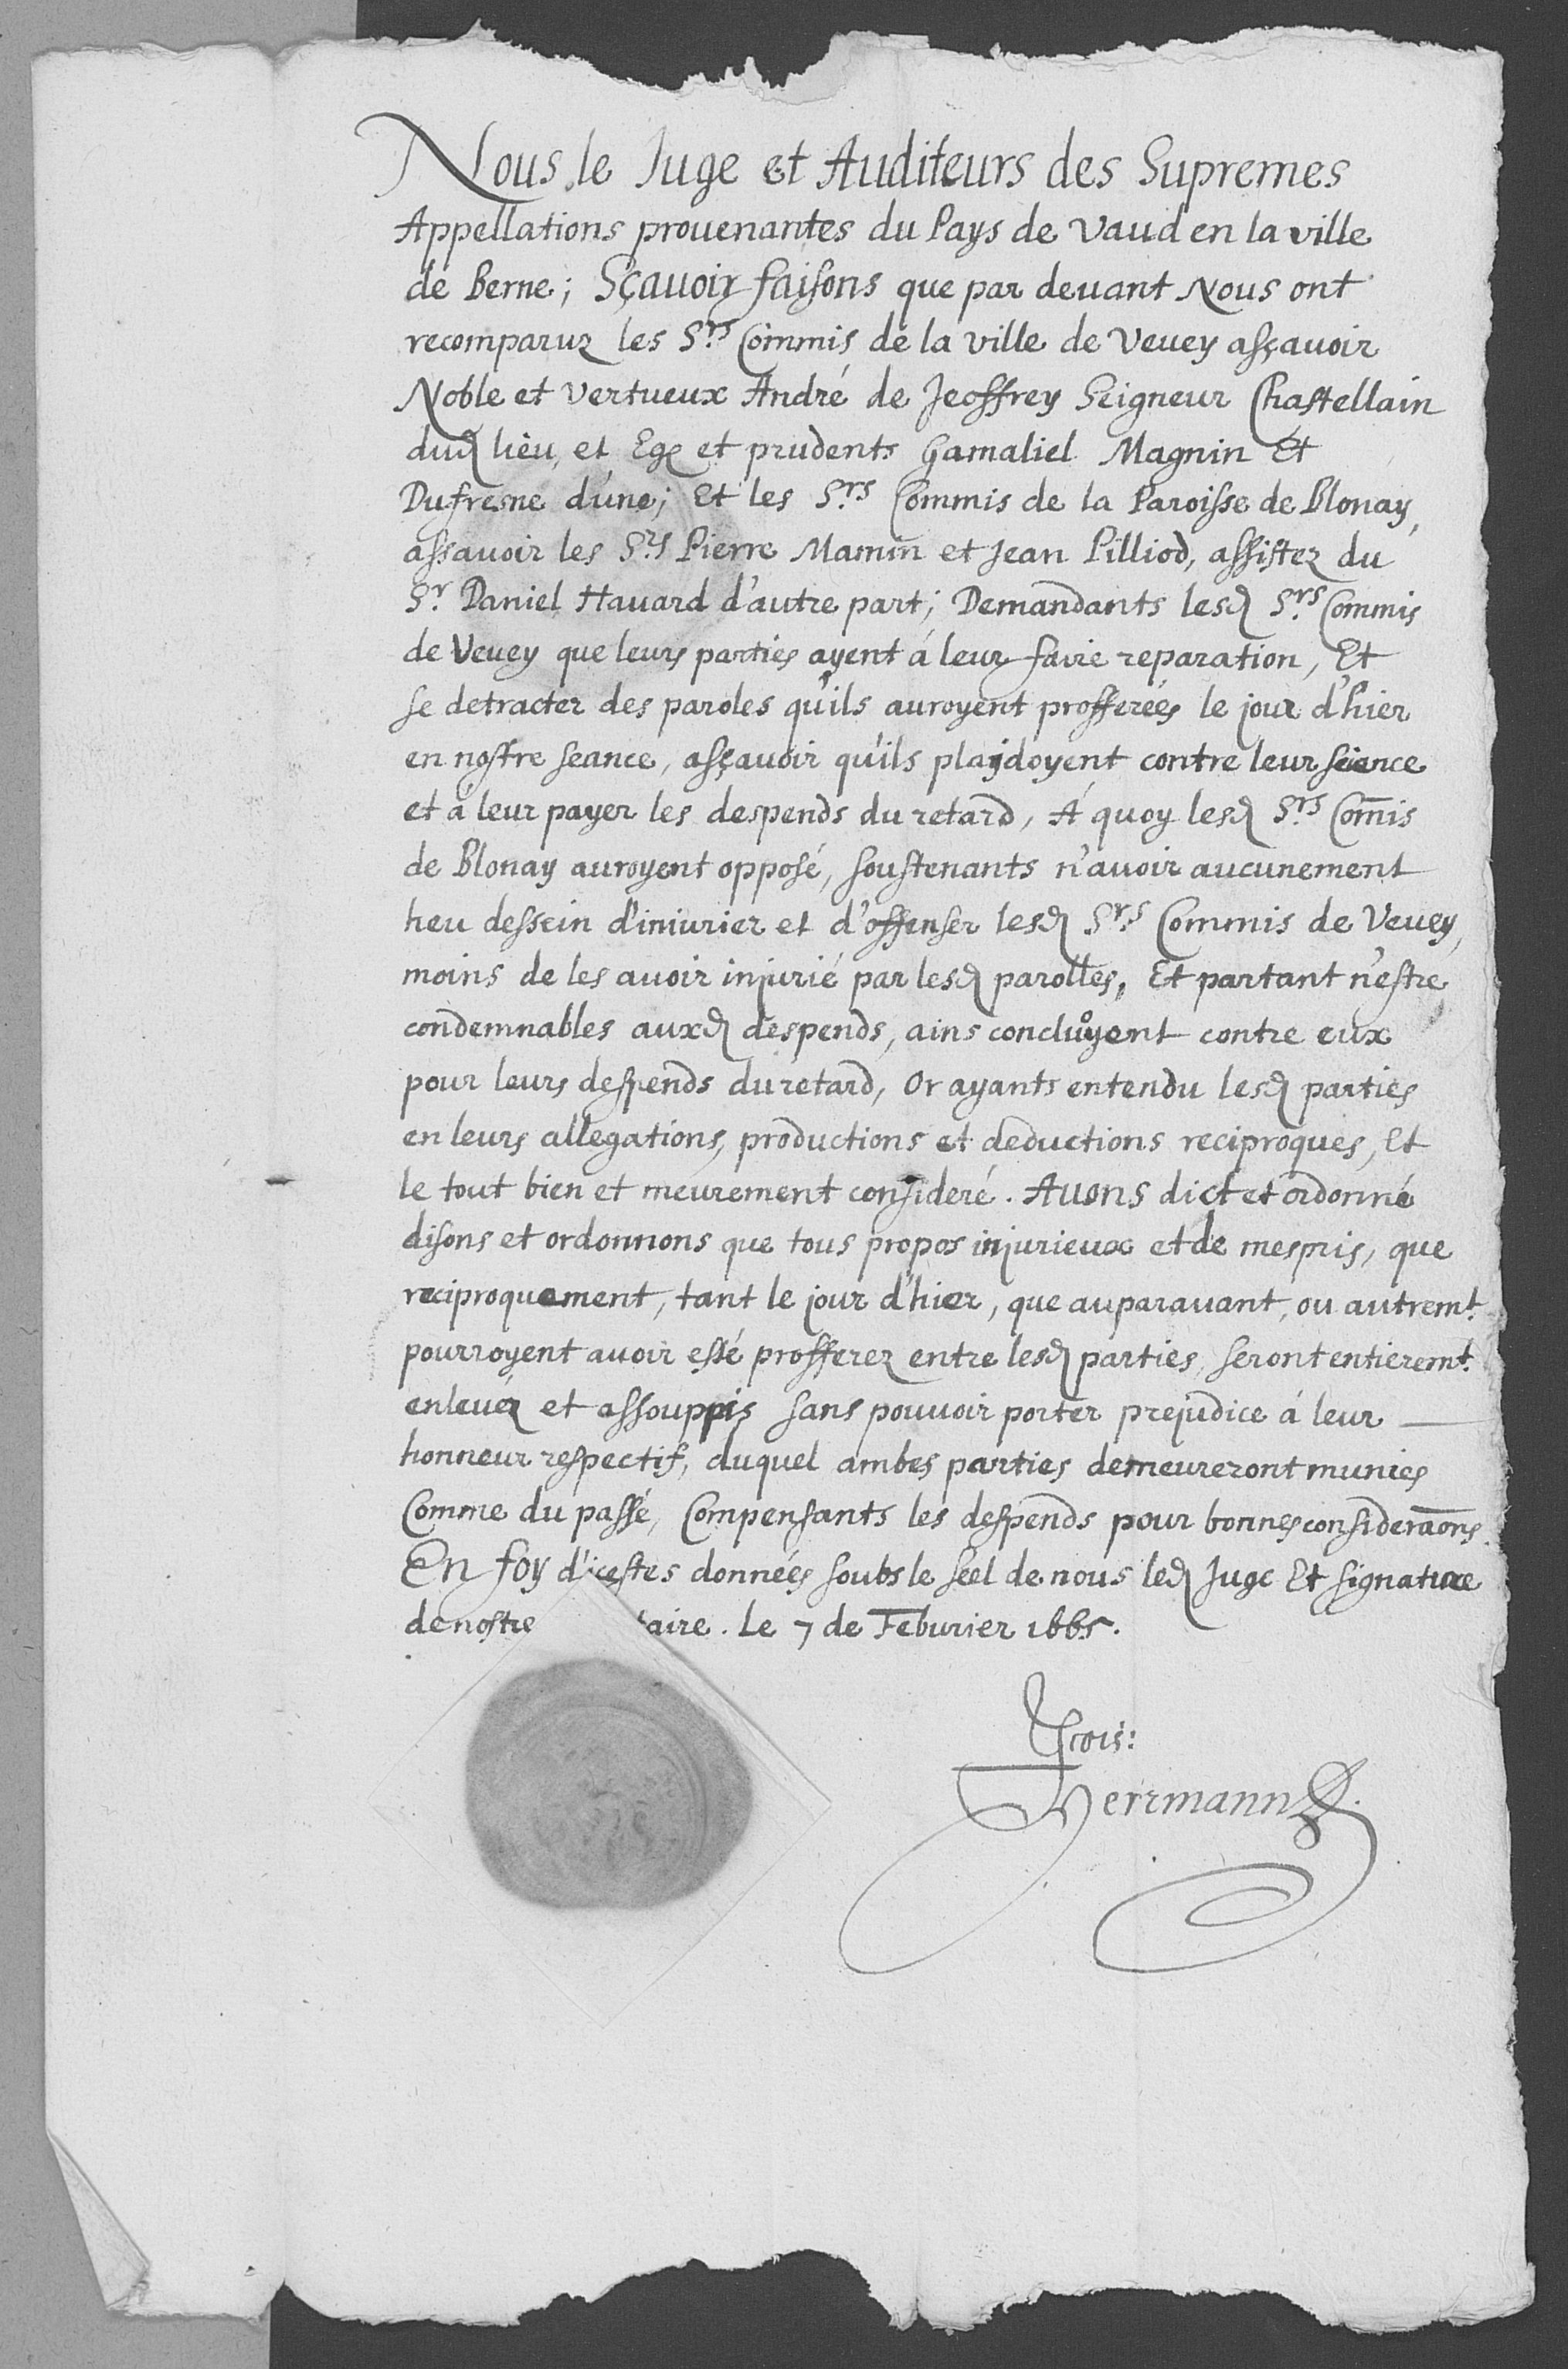 Nous le Juge et Auditeurs des Supremes
Appellations prouenantes du Pays de Vaud en la ville
de Berne; Sçauoir faisons que par deuant Nous ont
recomparuz les S.rs Commis de la ville de Veuey asçauoir
Noble et vertueux André de Jeoffrey Seigneur Chastellain
dud lieu, et Eg et prudents Gamaliel Magnin Et
Dufresne d'une; Et les S.rs Commis de la Paroisse de Blonay,
assauoir les S.rs Pierre Mamin et Jean Pilliod, assistez du
S.r Daniel Hauard d'autre part; Demandants lesd S.rs Commis
de Veuey que leurs parties ayent à leur faire reparation, Et
se detracter des paroles qu'ils auroyent profferées le jour d'hier
en nostre seance, asçauoir qu'ils playdoyent contre leur science
et à leur payer les despends du retard, A quoy lesd S.rs Com̄is
de Blonay auroyent opposé, soustenants n'auoir aucunement
heu dessein d'iniurier et d'offenser lesd S.rs Commis de Veuey,
moins de les auoir injurié par lesd parolles, Et partant n'estre
condemnables auxd despends, ains concluoyent contre eux
pour leurs despends du retard, Or ayants entendu lesd parties
en leurs allegations, productions et deductions reciproques, Et
le tout bien et meurement consideré. Auons dict et ordonné
disons et ordonnons que tous propos injurieux et de mespris, que
reciproquement, tant le jour d'hier, que auparauant, ou autrem.t
pourroyent auoir esté profferez entre lesd parties, seront entierem.t
enleuéz et assouppis sans pouuoir porter prejudice à leur
honneur respectif, duquel ambes parties demeureront munies
Comme du passé, Compensants les despends pour bonnes consideraōns.
En foy d'icestes données soubs le séel de nous led Juge Et signature
de nostre taire. Le 7 de Feburier 1665.
Herrmann